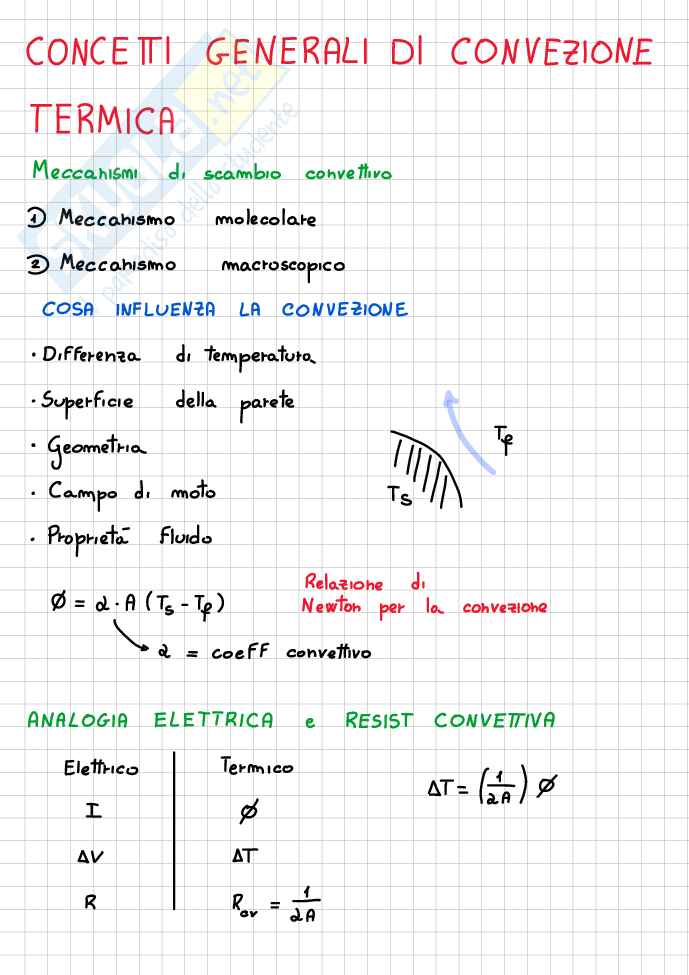 CONCETTI GENERALI DI CONVEZIONE
TERMICA
Meccanismi di scambio convettivo
① Meccanismo molecolare
② Meccanismo macroscopico
COSA INFLUENZA LA CONVEZIONE
· Differenza di temperatura
· Superficie della parete
· Geometria
· Campo di moto
· Proprietà Fluido
Tf
Ts
Ø = α · A (Ts - Tf)
Relazione di
Newton per la convezione
α = coeff convettivo
ANALOGIA ELETTRICA e RESIST CONVETTIVA
Elettrico Termico
I Ø
ΔV ΔT
R Rcv = 1/αA
ΔT = (1/αA) Ø